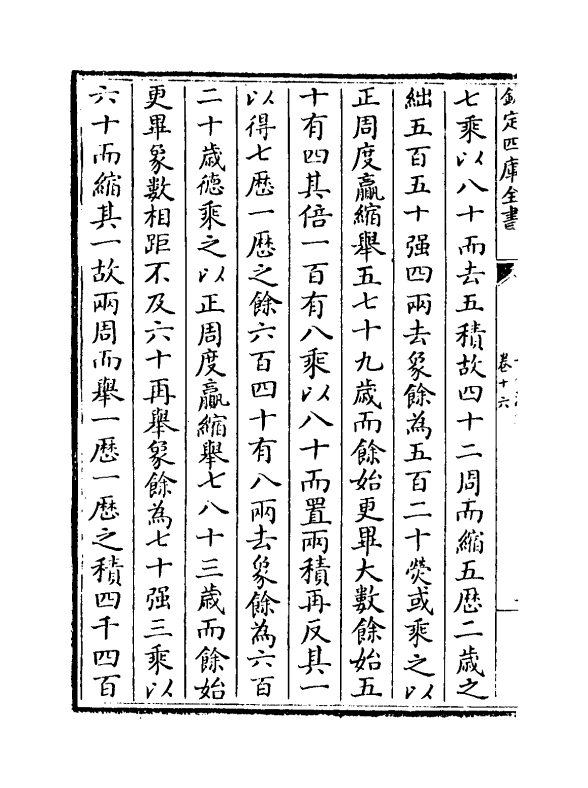 欽定四庫全書
卷十六
七乘以八十而去五積故四十二周而縮五歴二歳之
絀五百五十强四兩去象餘為五百二十熒或乘之以
正周度贏縮舉五七十九歳而餘始更畢大數餘始五
十有四其倍一百有八乘以八十而置兩積再反其一
以得七歴一歴之餘六百四十有八兩去象餘為六百
二十歳徳乘之以正周度贏縮舉七八十三歳而餘始
更畢象數相距不及六十再舉象餘為七十强三乘以
六十而縮其一故兩周而舉一歴一歴之積四千四百